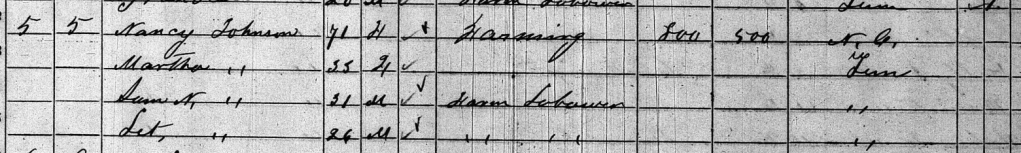 5 5 Nancy Johnson 71 F Farming 800 500 N. C.
Martha " 35 F Tenn
Sam N. " 31 M Farm Laborer "
Let, " 26 M " " "